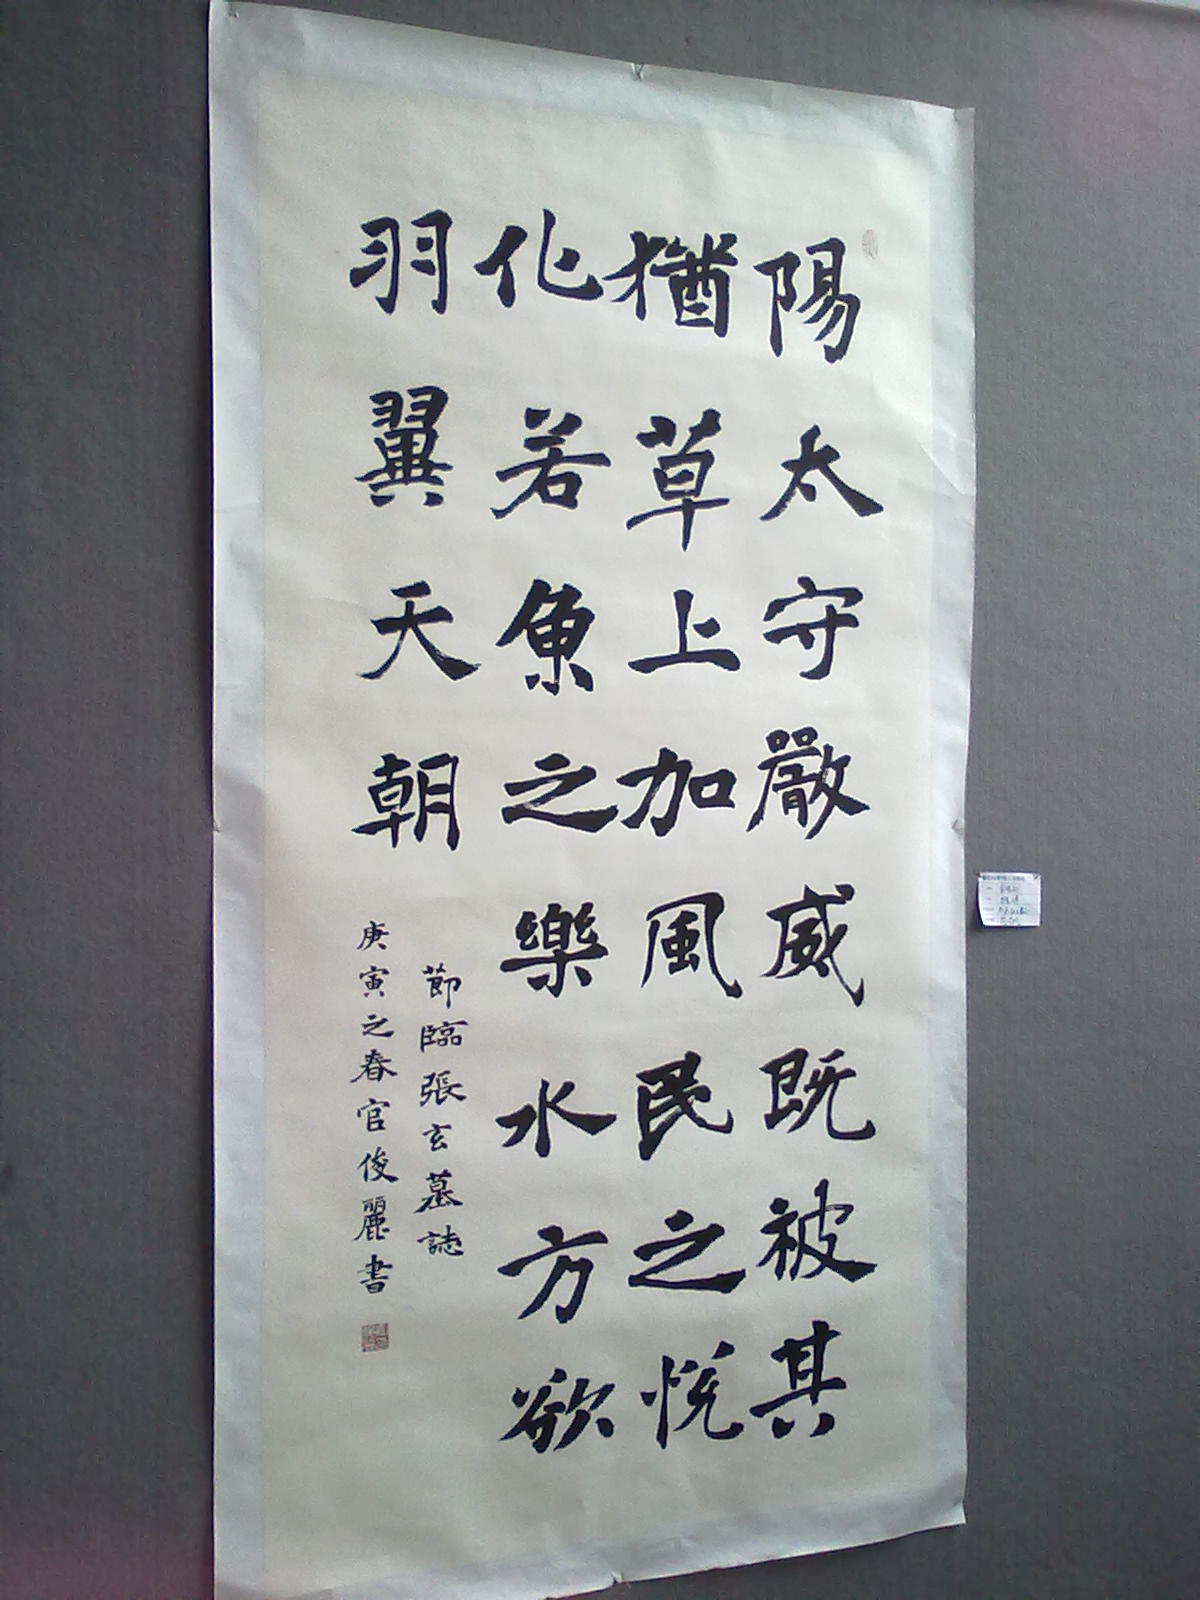 陽太守嚴威既被其
猶草上加風民之悅
化若魚之樂水方欲
羽翼天朝
節臨張玄墓誌
庚寅之春官俊麗書